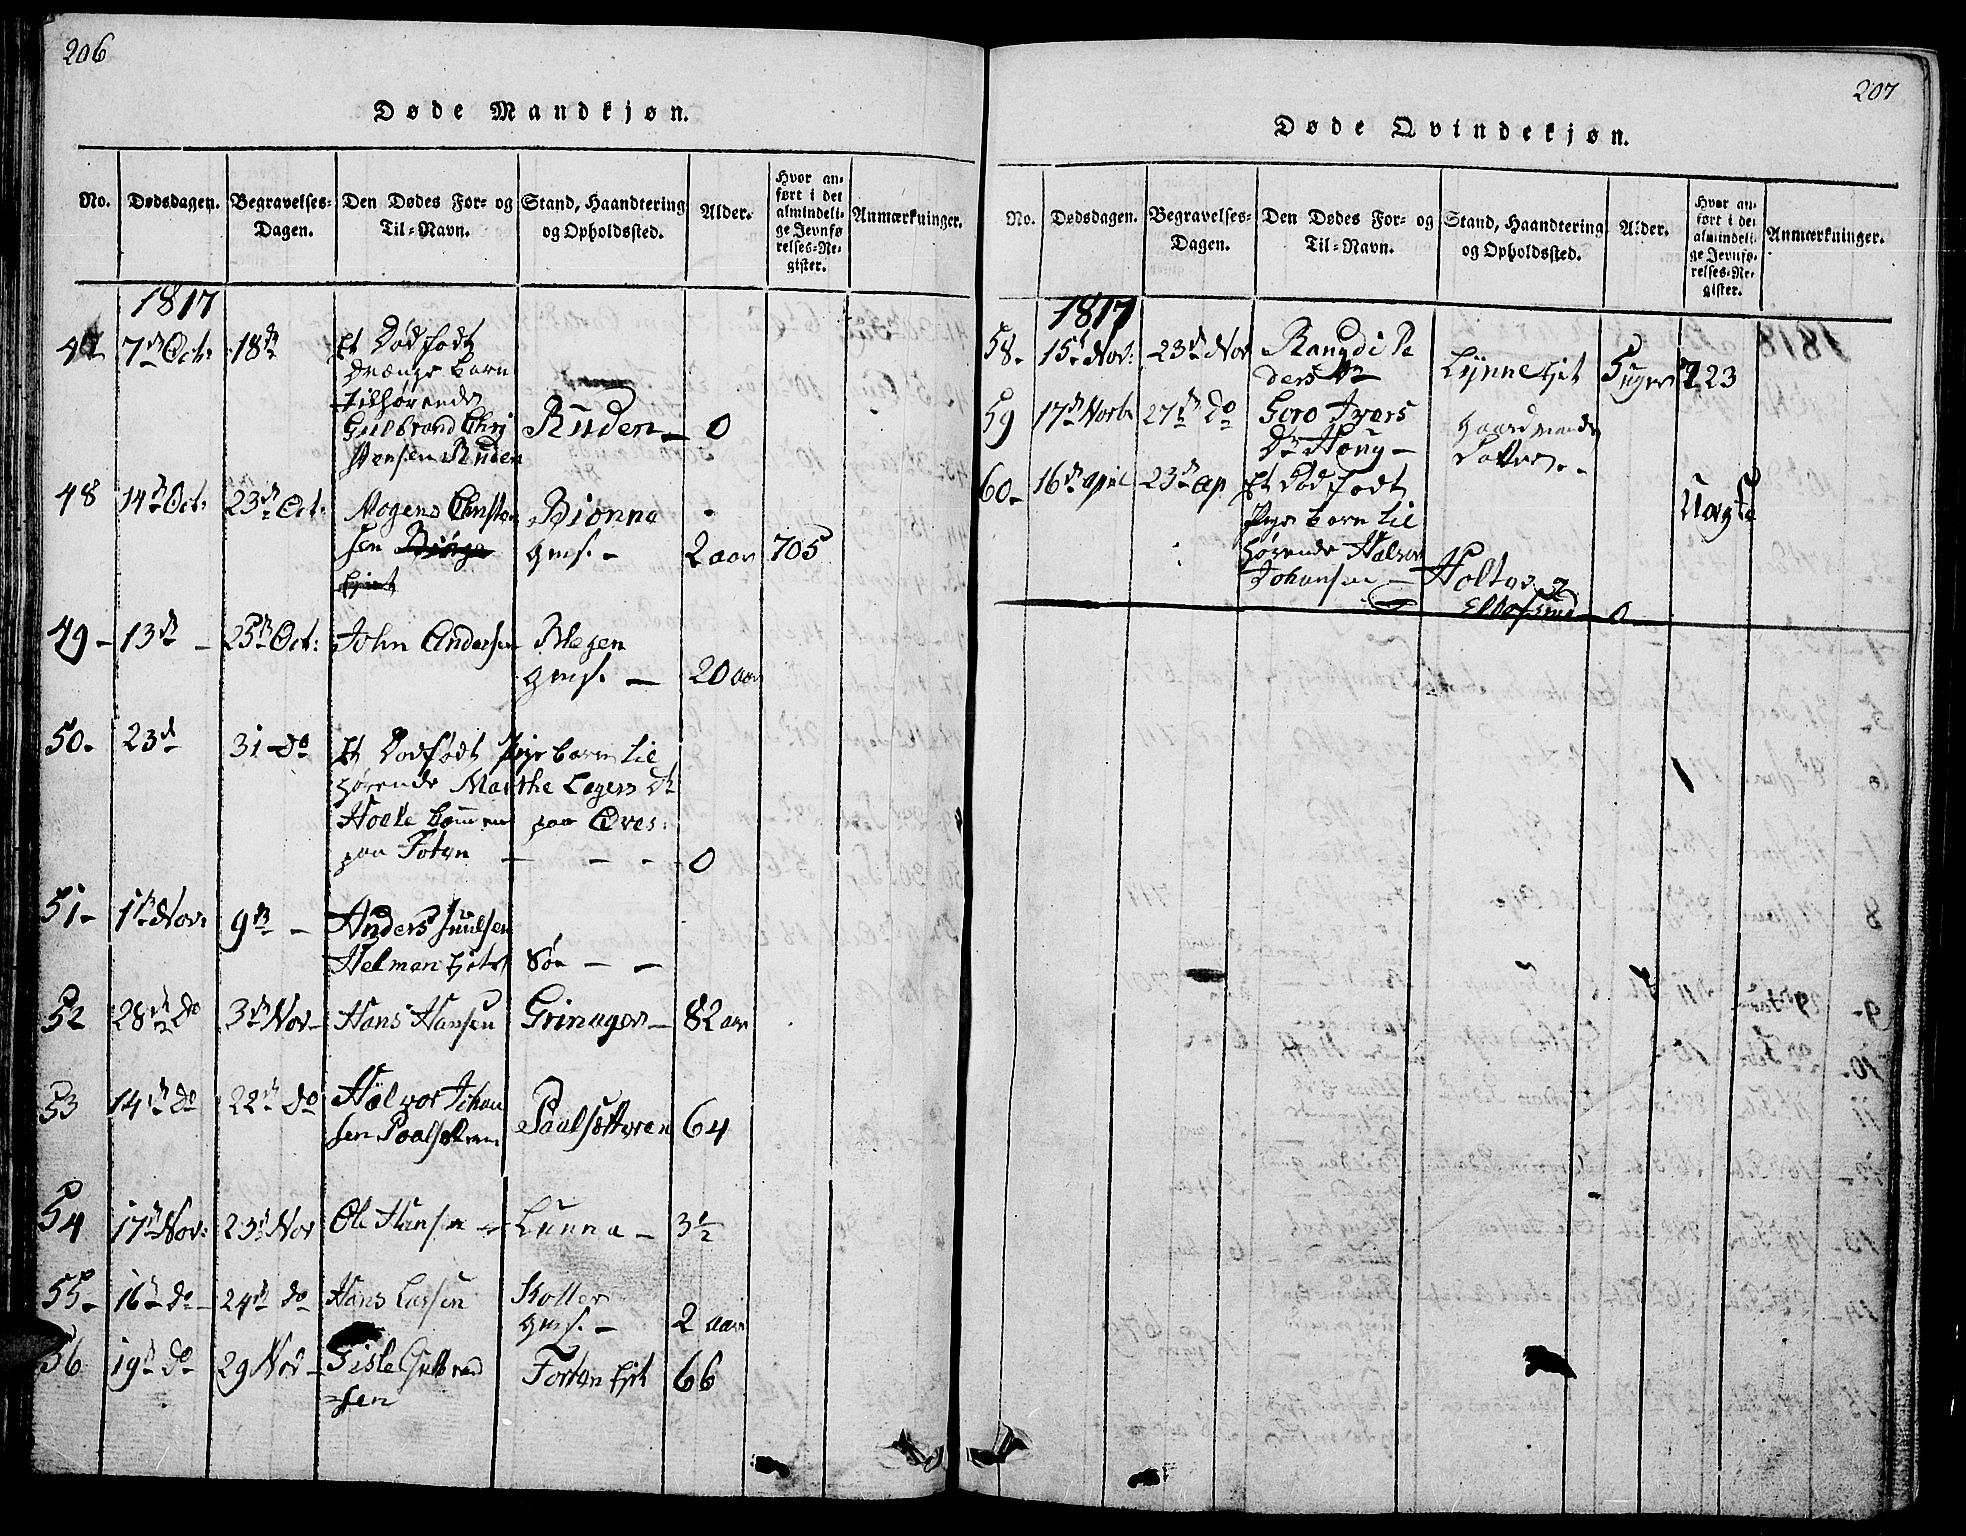 206
Døde Mandkjøn.
No. Dødsdagen. Begravelses-Dagen. Den Dødes For- og Til-Navn. Stand, Haandtering og Opholdssted. Alder. Hvor anført i det almindelige Jevnførelses-Register. Anmærkninger.
1817
47 7de Oct: 18de Et Dødfødt
Drænge barn
tilhørende
Gulbrand Chri
stensen Ruden Ruden 0
48 14de Oct: 23de Oct: Mogens Christen
sen Bionna
gms. 2 aar 705
49 13de 25de Oct: John Andersen Blegen
gms. 20 aar
50. 23d 31 do Et Dødfødt Pige barn til
hørende Marthe Lagers Dr
paa Toten 0
51 1de Nov: 9de Anders Juulsen
Helman Eiets Søn
52 28de do 3de Nov Hans Hansen Grinager 82 aar
53 14de do 22de do Halvor Johan
sen Paalsetteren Paalsetteren 64
54 17de Nov: 23de Nov Ole Hansen Lunna 3½
55 16de do 24de do Hans Larsen Koller
gms. 2 aar
56 19de do 29 Nov Gisle Gulbrand
sen Eiet 66
207
Døde Qvindekjøn.
No. Dødsdagen. Begravelses-Dagen. Den Dødes For- og Til-Navn. Stand, Haandtering og Opholdssted. Alder. Hvor anført i det almindelige Jevnførelses-Register. Anmærkninger.
1817
58 15de Nov: 23de Nov Rangdi Pe
ders Dr Lynne Eiet 5 uger 723
59 17de Novb 27de do Goro Ivers
Dr Houg Gaardmands
Datter
60 16de april 23de ap Et Dødfødt
Pige barn til
hørende Halvor
Johansen Holter
0